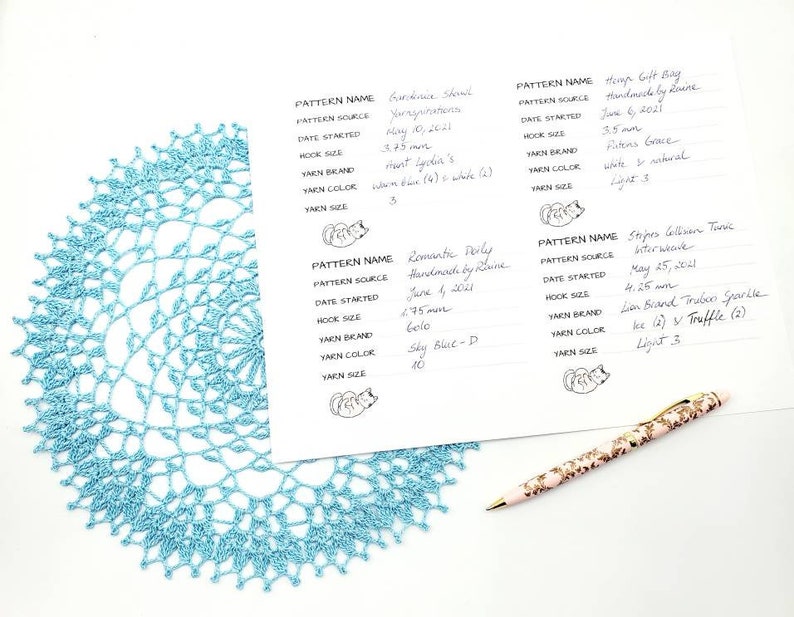 PATTERN NAME Gardenia Shawl
PATTERN SOURCE Yarnspirations
DATE STARTED May 10, 2021
HOOK SIZE 3.75 mm
YARN BRAND Aunt Lydia's
YARN COLOR Warm Blue (4) & White (2)
YARN SIZE 3
PATTERN NAME Hemp Gift Bag
PATTERN SOURCE Handmade by Raine
DATE STARTED June 6, 2021
HOOK SIZE 3.5 mm
YARN BRAND Patons Grace
YARN COLOR White & natural
YARN SIZE Light 3
PATTERN NAME Romantic Doily
PATTERN SOURCE Handmade by Raine
DATE STARTED June 1, 2021
HOOK SIZE 1.75 mm
YARN BRAND Golo
YARN COLOR Sky Blue - D
YARN SIZE 10
PATTERN NAME Stripes Collision Tunic
PATTERN SOURCE Interweave
DATE STARTED May 25, 2021
HOOK SIZE 4.25 mm
YARN BRAND Lion Brand Truboo Sparkle
YARN COLOR Ice (2) & Truffle (2)
YARN SIZE Light 3